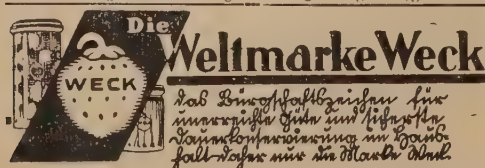 Die
Weltmarke Weck
WECK
das Bürgschaftszeichen für
unerreichte Güte und sicherste
Dauerkonservierung im Haus-
halt. Daher nur die Marke Weck.